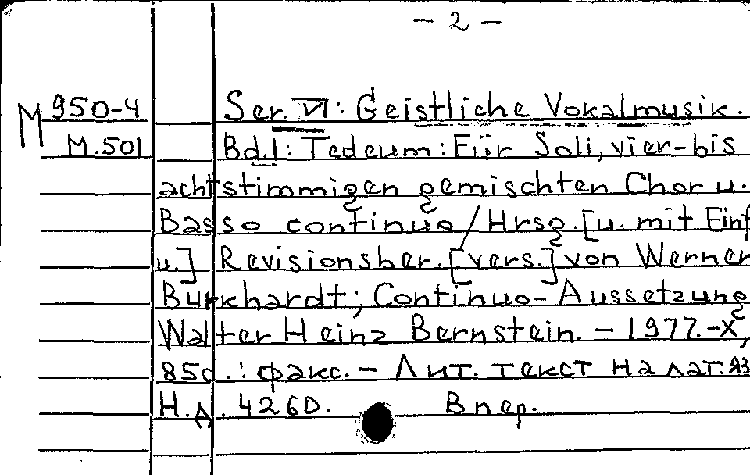 – 2 –
M 950-4 Ser. VI: Geistliche Vokalmusik.
M.501 Bd.1: Tedeum: Für Soli, vier- bis
achtstimmigen gemischten Chor u.
Basso continuo / Hrsg. [u. mit Einf
u.] Revisionsber. [vers.] von Werner
Burkhardt; Continuo-Aussetzung
Walter Heinz Bernstein. – 1977. – X,
85c.: факс. – Лит. текст на лат. яз
Н.д. 4260. Впер.